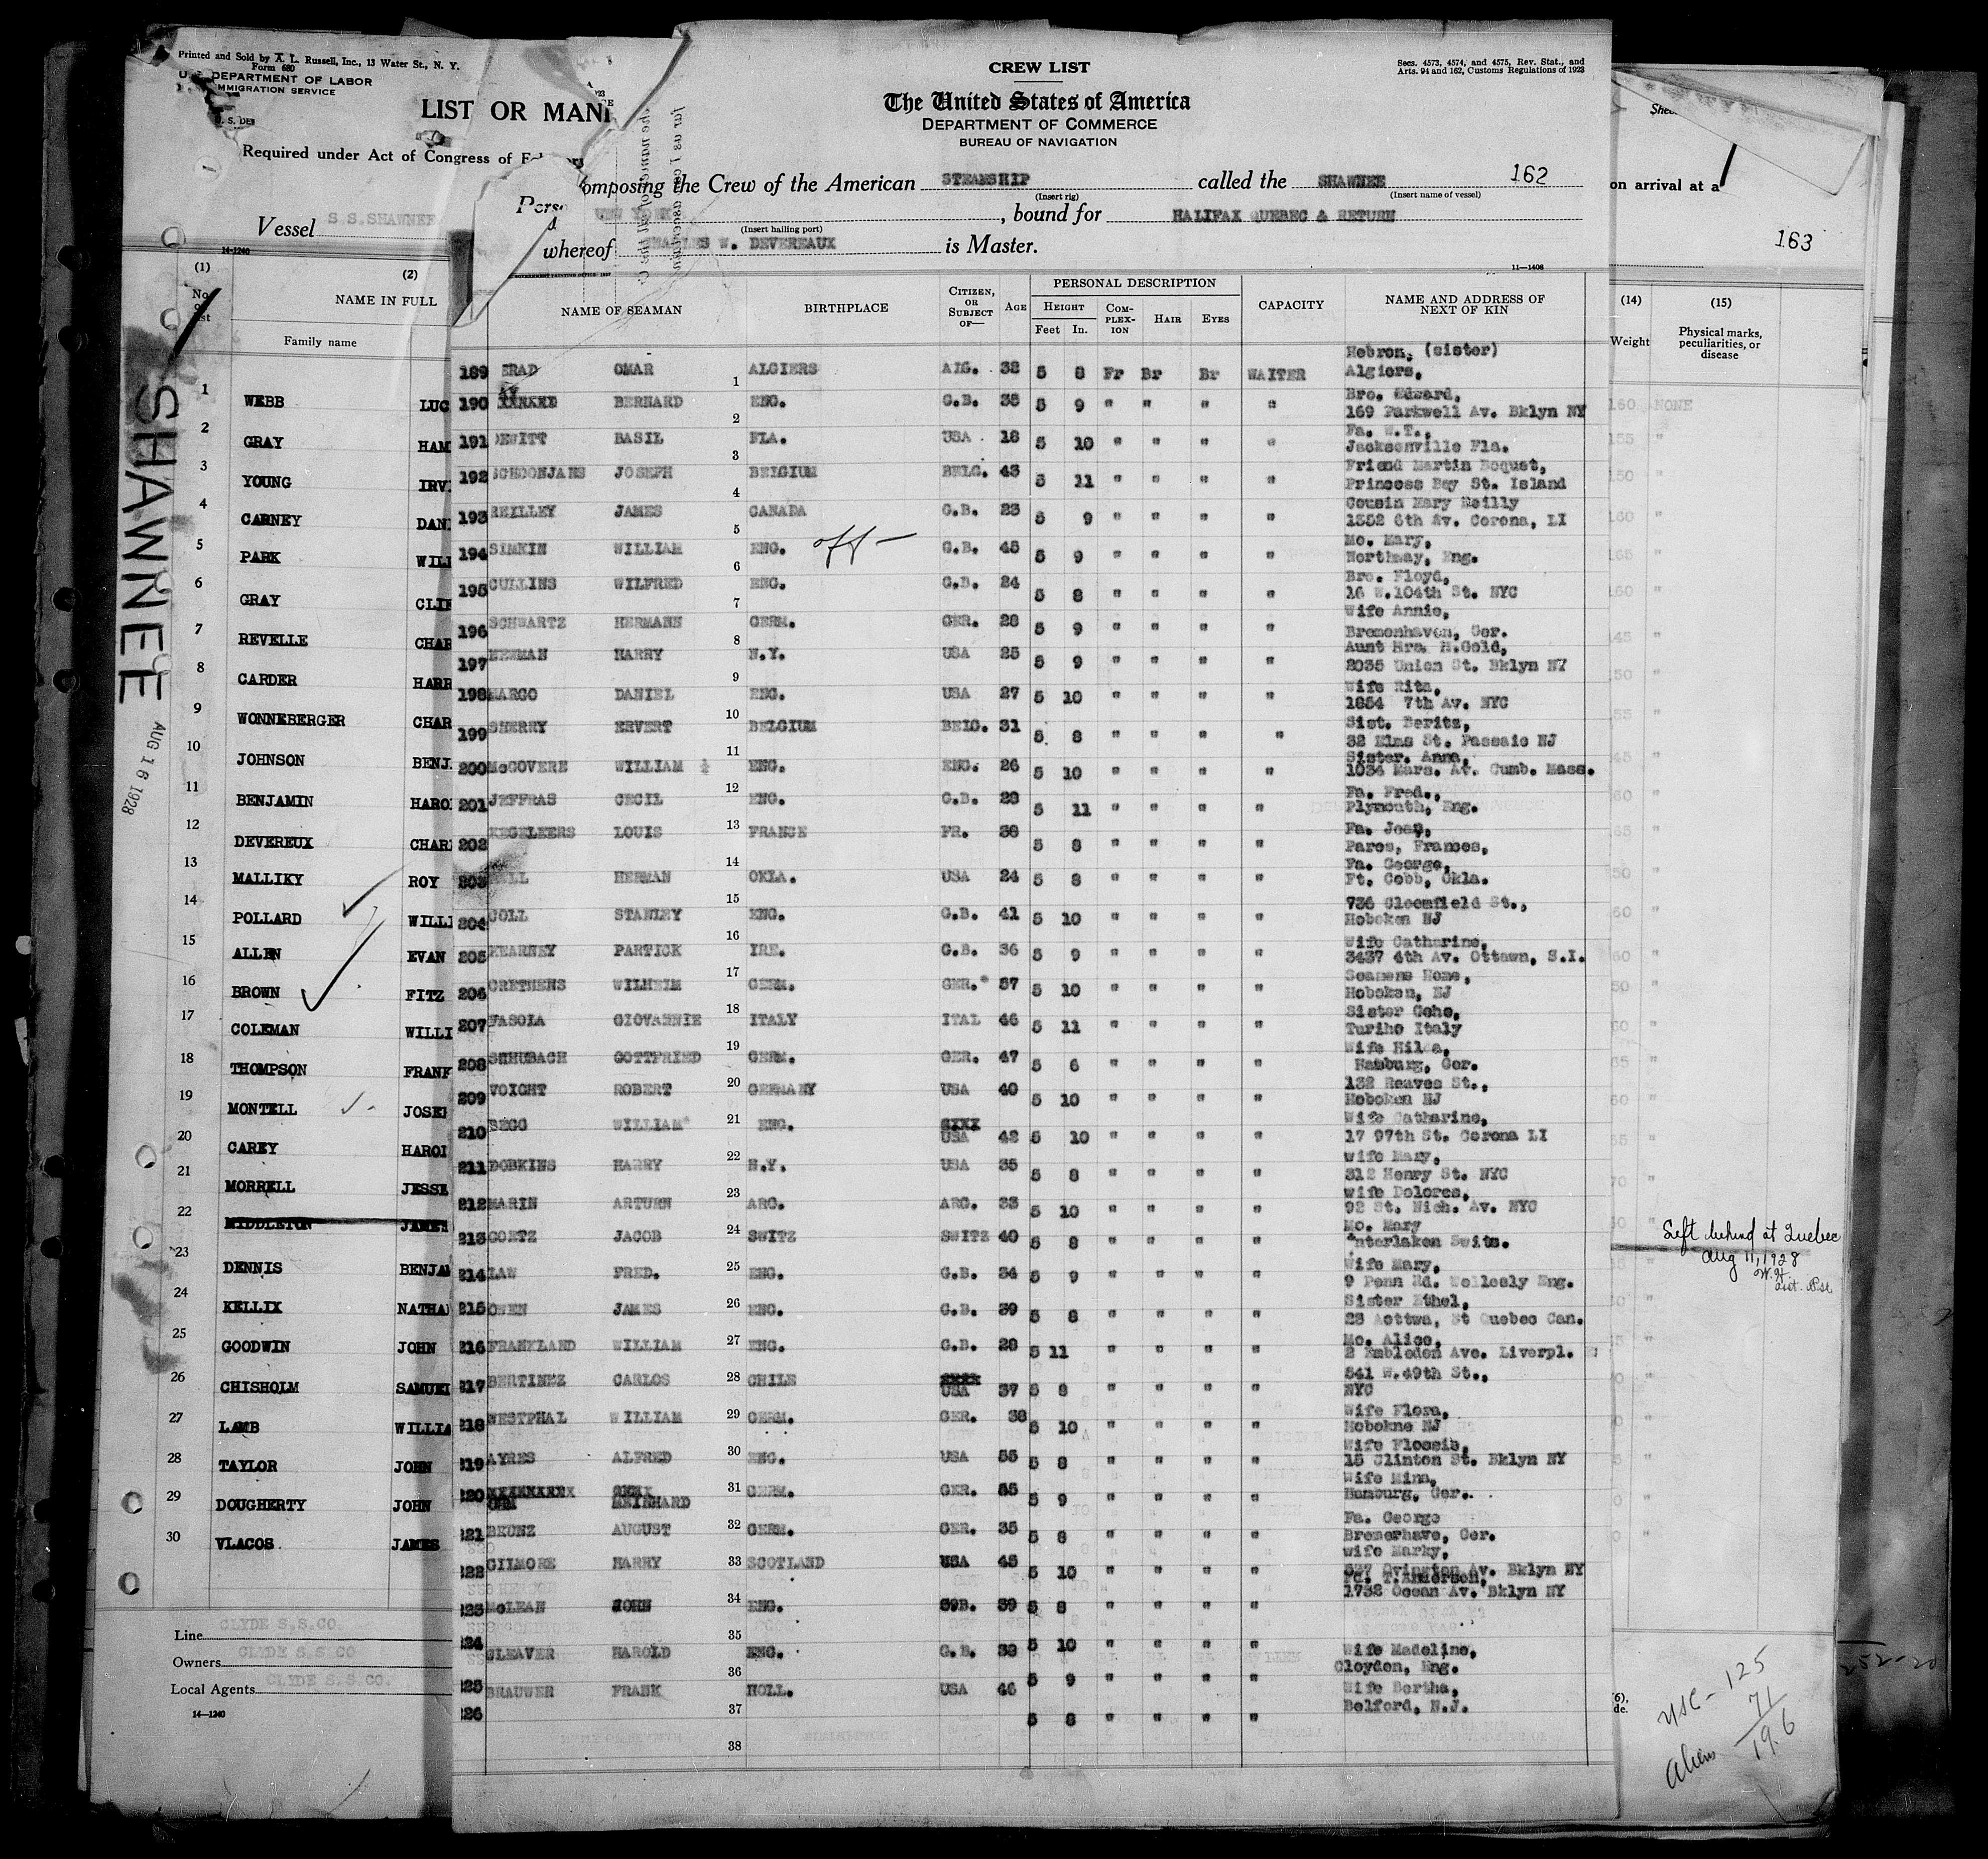 Printed and Sold by A. L. Russell, Inc., 13 Water St., N. Y.
Form 680
U. S. DEPARTMENT OF LABOR
IMMIGRATION SERVICE
LIST OR MANI
Required under Act of Congress of
Vessel S.S.SHAWNEE
14-1240
(1) (2)
NAME IN FULL
Family name
1 WEBB LUC
2 GRAY HAM
3 YOUNG IRV
4 CARNEY DAN
5 PARK WILL
6 GRAY CLIF
7 REVELLE CHAR
8 CARDER HARR
9 WONNEBERGER CHAR
10 JOHNSON BENJ
11 BENJAMIN HARO
12 DEVEREUX CHAR
13 MALLIKY ROY
14 POLLARD WILLI
15 ALLEN EVAN
16 BROWN FITZ
17 COLEMAN WILLI
18 THOMPSON FRANK
19 MONTELL JOSE
20 CAREY HAROL
21 MORRELL JESSE
22 MIDDLETON JAMES
23 DENNIS BENJA
24 KELLIX NATHA
25 GOODWIN JOHN
26 CHISHOLM SAMUE
27 LAMB WILLIA
28 TAYLOR JOHN
29 DOUGHERTY JOHN
30 VLACOS JAMES
Line CLYDE S.S.CO.
Owners CLYDE S.S CO
Local Agents CLYDE S.S CO.
14-1240
SHAWNEE
AUG 16 1928
CREW LIST
Secs. 4573, 4574, and 4575, Rev. Stat., and
Arts. 94 and 162, Customs Regulations of 1923
The United States of America
DEPARTMENT OF COMMERCE
BUREAU OF NAVIGATION
omposing the Crew of the American STEAMSHIP called the SHAWNEE 162
(Insert rig) (Insert name of vessel)
NEW YORK, bound for HALIFAX QUEBEC & RETURN
(Insert hailing port)
whereof CHARLES W. DEVEREAUX is Master.
11-1408
NAME OF SEAMAN BIRTHPLACE CITIZEN, OR SUBJECT OF— AGE PERSONAL DESCRIPTION CAPACITY NAME AND ADDRESS OF NEXT OF KIN
HEIGHT COMPLEXION HAIR EYES
Feet In.
Hebron, (sister)
189 ERAD OMAR 1 ALGIERS AIG. 32 5 8 Fr Br Br WAITER Algiers,
Bro. Edward,
190 BERNARD 2 ENG. G.B. 35 5 9 " " " " 169 Parkwell Av. Bklyn NY
Fa. W.T.,
191 DEWITT BASIL 3 FLA. USA 18 5 10 " " " " Jacksonville Fla.
Friend Martin Boquet,
192 SCHOONJANS JOSEPH 4 BELGIUM BELG. 43 5 11 " " " " Princess Bay St. Island
Cousin Mary Reilly
193 REILLEY JAMES 5 CANADA G.B. 23 5 9 " " " " 1352 6th Av. Corona, LI
Mo. Mary,
194 SIMKIN WILLIAM 6 ENG. off - G.B. 45 5 9 " " " " Northway, Eng.
Bro. Floyd,
195 CULLINS WILFRED 7 ENG. G.B. 24 5 8 " " " " 16 W.104th St. NYC
Wife Annie,
196 SCHWARTZ HERMANN 8 GERM. GER. 28 5 9 " " " " Bremenhaven, Ger.
Aunt Mrs. H.Gold,
197 NEWMAN HARRY 9 N.Y. USA 25 5 9 " " " " 2035 Union St. Bklyn NY
Wife Rita,
198 MARGO DANIEL 10 ENG. USA 27 5 10 " " " " 1854 7th Av. NYC
Sist. Beritz,
199 SHERRY ERVERT 11 BELGIUM BELG. 31 5 8 " " " " 32 Elms St. Passaic NJ
Sister. Anna,
200 McGOVERE WILLIAM 12 ENG. ENG. 26 5 10 " " " " 1034 Mars. Av. Cumb. Mass.
Fa. Fred.,
201 JEFFRAS CECIL 13 ENG. G.B. 28 5 11 " " " " Plymouth, Eng.
Fa. Jean,
202 KEGELEERS LOUIS 14 FRANCE FR. 38 5 8 " " " " Pares, Frances,
Fa. George,
203 HERMAN 15 OKLA. USA 24 5 8 " " " " Ft. Cobb, Okla.
736 Cloomfield St.,
204 COLL STANLEY 16 ENG. G.B. 41 5 10 " " " " Hoboken NJ
Wife Catharine,
205 KEARNEY PARTICK 17 IRE. G.B. 36 5 9 " " " " 3437 4th Av. Ottawn, S.I.
Seamens Home,
206 GRETHENS WILHEIM 18 GERM. GER. 37 5 10 " " " " Hoboken, NJ
Sister Gehe,
207 FASOLA GIOVANNIE 19 ITALY ITAL 46 5 11 " " " " Turiho Italy
Wife Hilda,
208 SCHUBACH GOTTFRIED 20 GERM. GER. 47 5 6 " " " " Hamburg, Ger.
132 Reaves St.,
209 VOIGHT ROBERT 21 GERMANY USA 40 5 10 " " " " Hoboken NJ
Wife Catharine,
210 BEGG WILLIAM 22 ENG. USA 42 5 10 " " " " 17 97th St. Corona LI
wife Mary,
211 DOBKINS HARRY 23 N.Y. USA 35 5 8 " " " " 312 Henry St. NYC
wife Dolores,
212 MARIN ARTURN 24 ARG. ARG. 33 5 10 " " " " 92 St. Nich. Av. NYC
Mo. Mary
213 GOETZ JACOB 25 SWITZ SWITZ 40 5 8 " " " " Interlaken Switz.
Wife Mary,
214 LAW FRED. 26 ENG. G.B. 34 5 9 " " " " 9 Penn Rd. Wellesly Eng.
Sister Ethel,
215 OWEN JAMES 27 ENG. G.B. 39 5 8 " " " " 28 Aottwa, St Quebec Can.
Mo. Alice,
216 FRANKLAND WILLIAM 28 ENG. G.B. 28 5 11 " " " " 2 Embledon Ave. Liverpl.
541 W.49th St.,
217 BERTINEZ CARLOS 29 CHILE USA 37 5 8 " " " " NYC
Wife Flora,
218 WESTPHAL WILLIAM 30 GERM. GER. 38 5 10 " " " " Hobokne NJ
Wife Flossie,
219 AYRES ALFRED 31 ENG. USA 55 5 8 " " " " 15 Clinton St. Bklyn NY
Wife Mina,
220 REINHARD 32 GERM. GER. 55 5 9 " " " " Hamburg, Ger.
Fa. George
221 BRUNZ AUGUST 33 GERM. GER. 35 5 8 " " " " Bremerhave, Ger.
wife Marky,
222 GILMORE HARRY 34 SCOTLAND USA 45 5 10 " " " " 537 Ovington Av. Bklyn NY
Fd. T.Anderson,
223 McLEAN JOHN 35 ENG. G.B. 39 5 8 " " " " 1732 Ocean Av. Bklyn NY
224 CLEAVER HAROLD 36 ENG. G.B. 38 5 10 " " " " Wife Madeline,
Cloyden, Eng.
225 BRAUWER FRANK 37 HOLL. USA 46 5 9 " " " " Wife Bertha,
226 38 5 8 " " " " Belford, N.J.
on arrival at a
163
(14) (15)
Weight Physical marks, peculiarities, or disease
160 NONE
Left behind at Quebec
Aug 11, 1928
USC - 125
71
Aliens 196
252-20